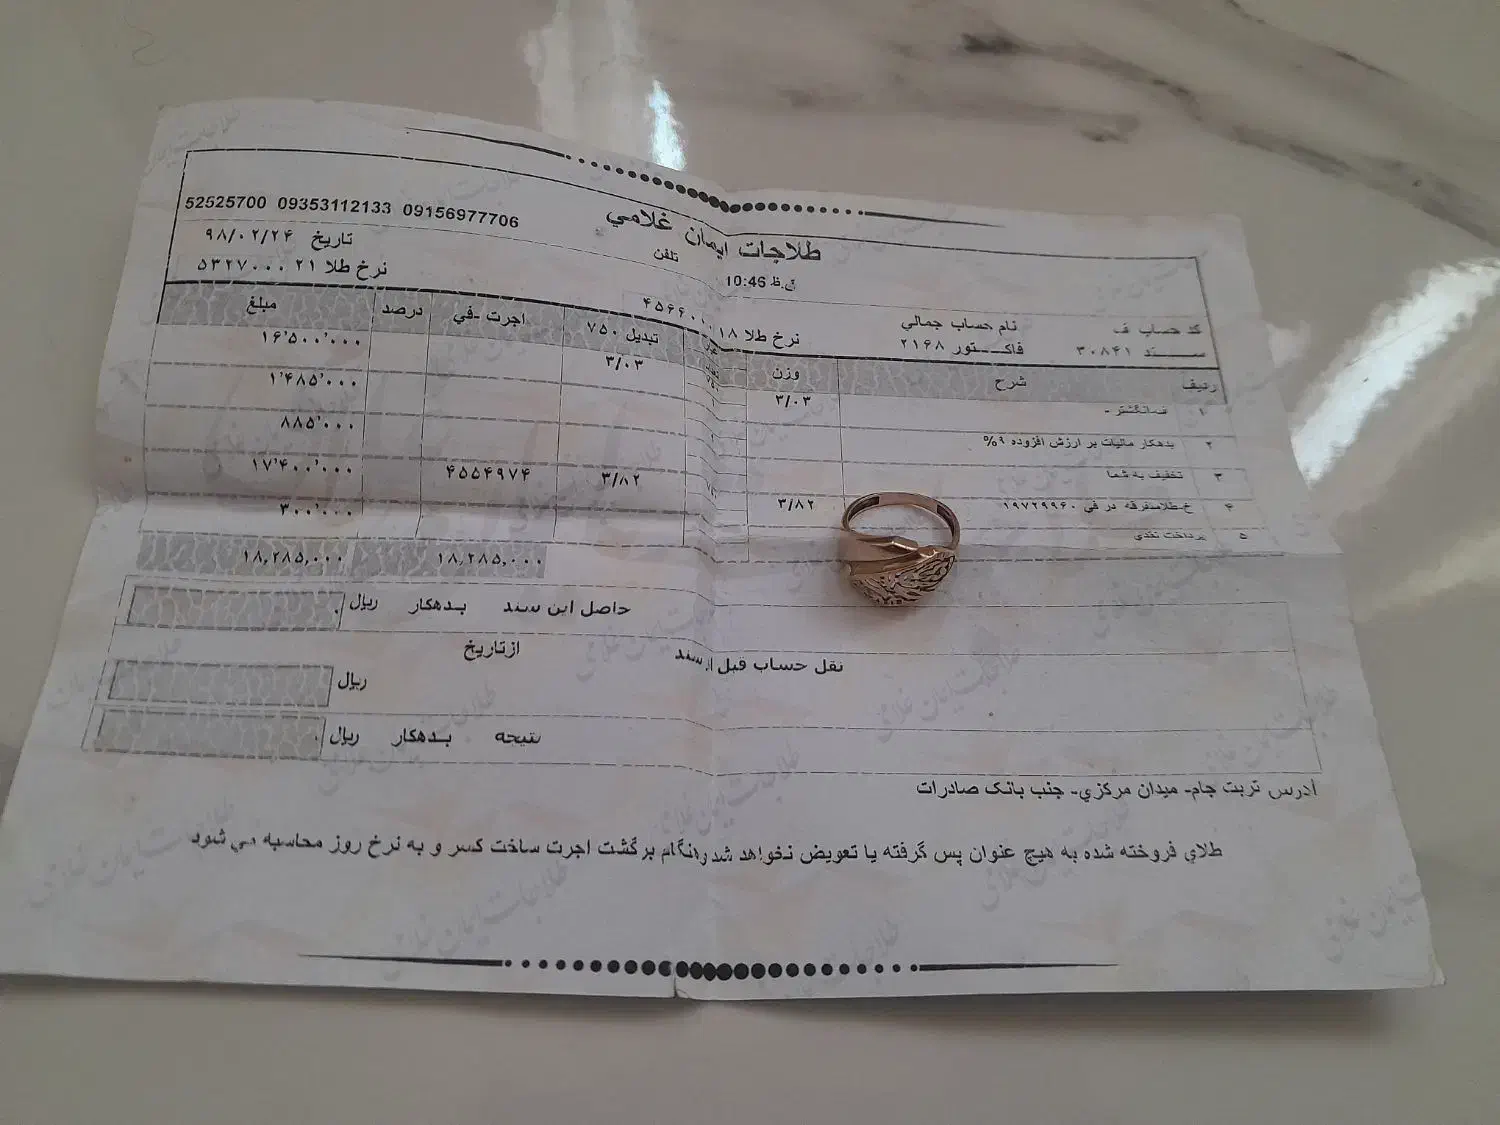 طلاجات ایمان غلامي
تلفن
52525700 09353112133 09156977706
تاریخ ۹۸/۰۲/۲۴
10:46 ق.ظ
نرخ طلا ۲۱ ۵۳۲۷۰۰۰
کد حساب ف نام حساب جمالي
نرخ طلا ۱۸ ۴۵۶۶۰۰۰
ســـند ۳۰۸۴۱ فاکـــتور ۲۱۶۸
ردیف شرح وزن تبدیل ۷۵۰ اجرت -في درصد مبلغ
۱ ف-انگشتر - ۳/۰۳ ۷۵۰ ۳/۰۳ ۱۶٬۵۰۰٬۰۰۰
۲ بدهکار مالیات بر ارزش افزوده ۹% ۱٬۴۸۵٬۰۰۰
۳ تخفیف به شما ۱ ۸۸۵٬۰۰۰
۴ خ-طلامتفرقه در في ۱۹۷۲۹۹۶۰ ۳/۸۲ ۳/۸۲ ۴۵۵۴۹۷۴ ۱۷٬۴۰۰٬۰۰۰
۵ پرداخت نقدي ۳۰۰٬۰۰۰
۱۸,۲۸۵,۰۰۰ ۱۸,۲۸۵,۰۰۰
حاصل این سند بدهکار ریال ۰
نقل حساب قبل از سند ازتاریخ
ریال
نتیجه بدهکار ریال ۰
آدرس تربت جام- میدان مرکزي- جنب بانک صادرات
طلاي فروخته شده به هیچ عنوان پس گرفته یا تعویض نخواهد شد وهنگام برگشت اجرت ساخت کسر و به نرخ روز محاسبه مي شود